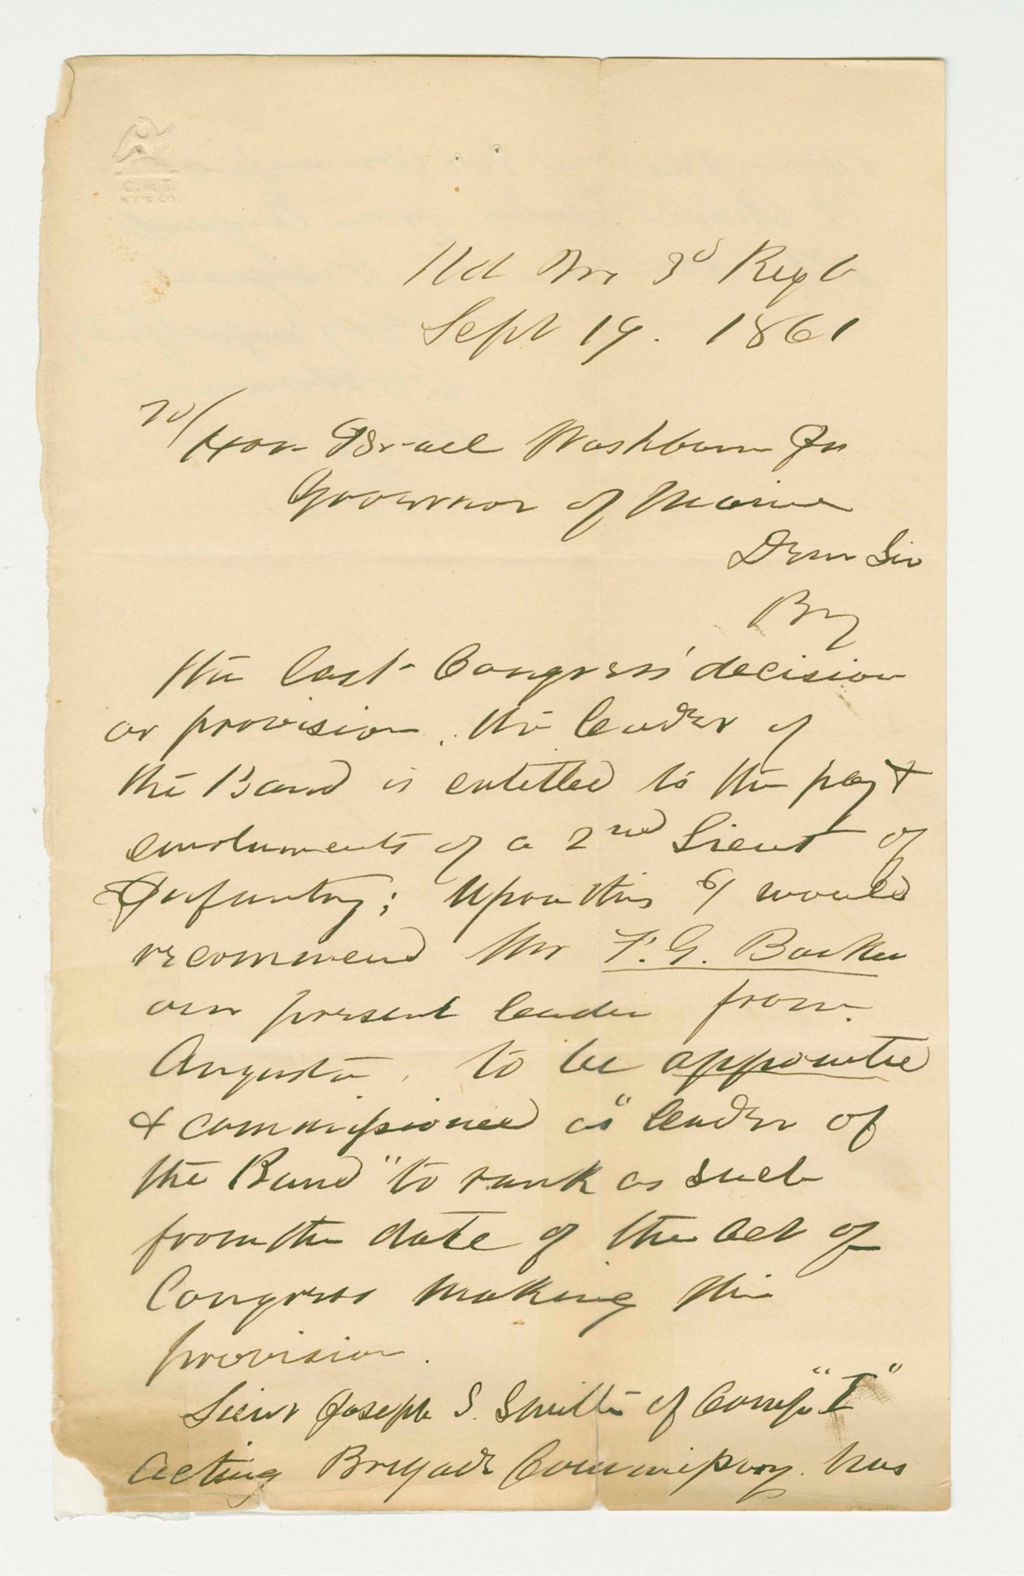 Hd Qrs 3d Regt
Sept 19. 1861
To/
Hon Israel Washburn Jr
Governor of Maine
Dear Sir
By
the last Congress' decision
or provision, the leader of
the Band is entitled to the pay &
emoluments of a 2nd Lieut of
Infantry; Upon this I would
recommend Mr F. G. Barker
our present leader from
Augusta, to be appointed
& commissioned as "leader of
the Band" to rank as such
from the date of the act of
Congress making this
provision.
Lieut Joseph S. Smith of Comp. "I"
Acting Brigade Commissary. has